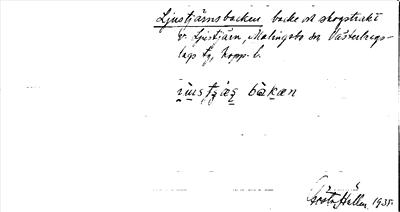 Ljustjärnsbacken backe o skogstrakt
v. Ljustjärn, Malingsbo sn Västerbergs-
lags tg, Kopp. l.
bàkæn
Gösta Hallén 1935.